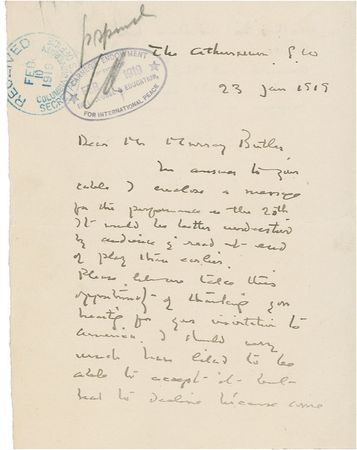 RECEIVED
FEB 10 1919
answered
CARNEGIE ENDOWMENT
FEB 1919
EDUCATION,
FOR INTERNATIONAL PEACE
The Athenaeum, S.W
23 Jan 1919
Dear Mr Murray Butler
In answer to your
cable I enclose a message
for the performance on the 20th
It would be better understood
by audience if read at end
of play than earlier.
Please let me take this
opportunity of thanking you
heartily for your invitation to
America. I should very
much have liked to be
able to accept it but
had to decline because some